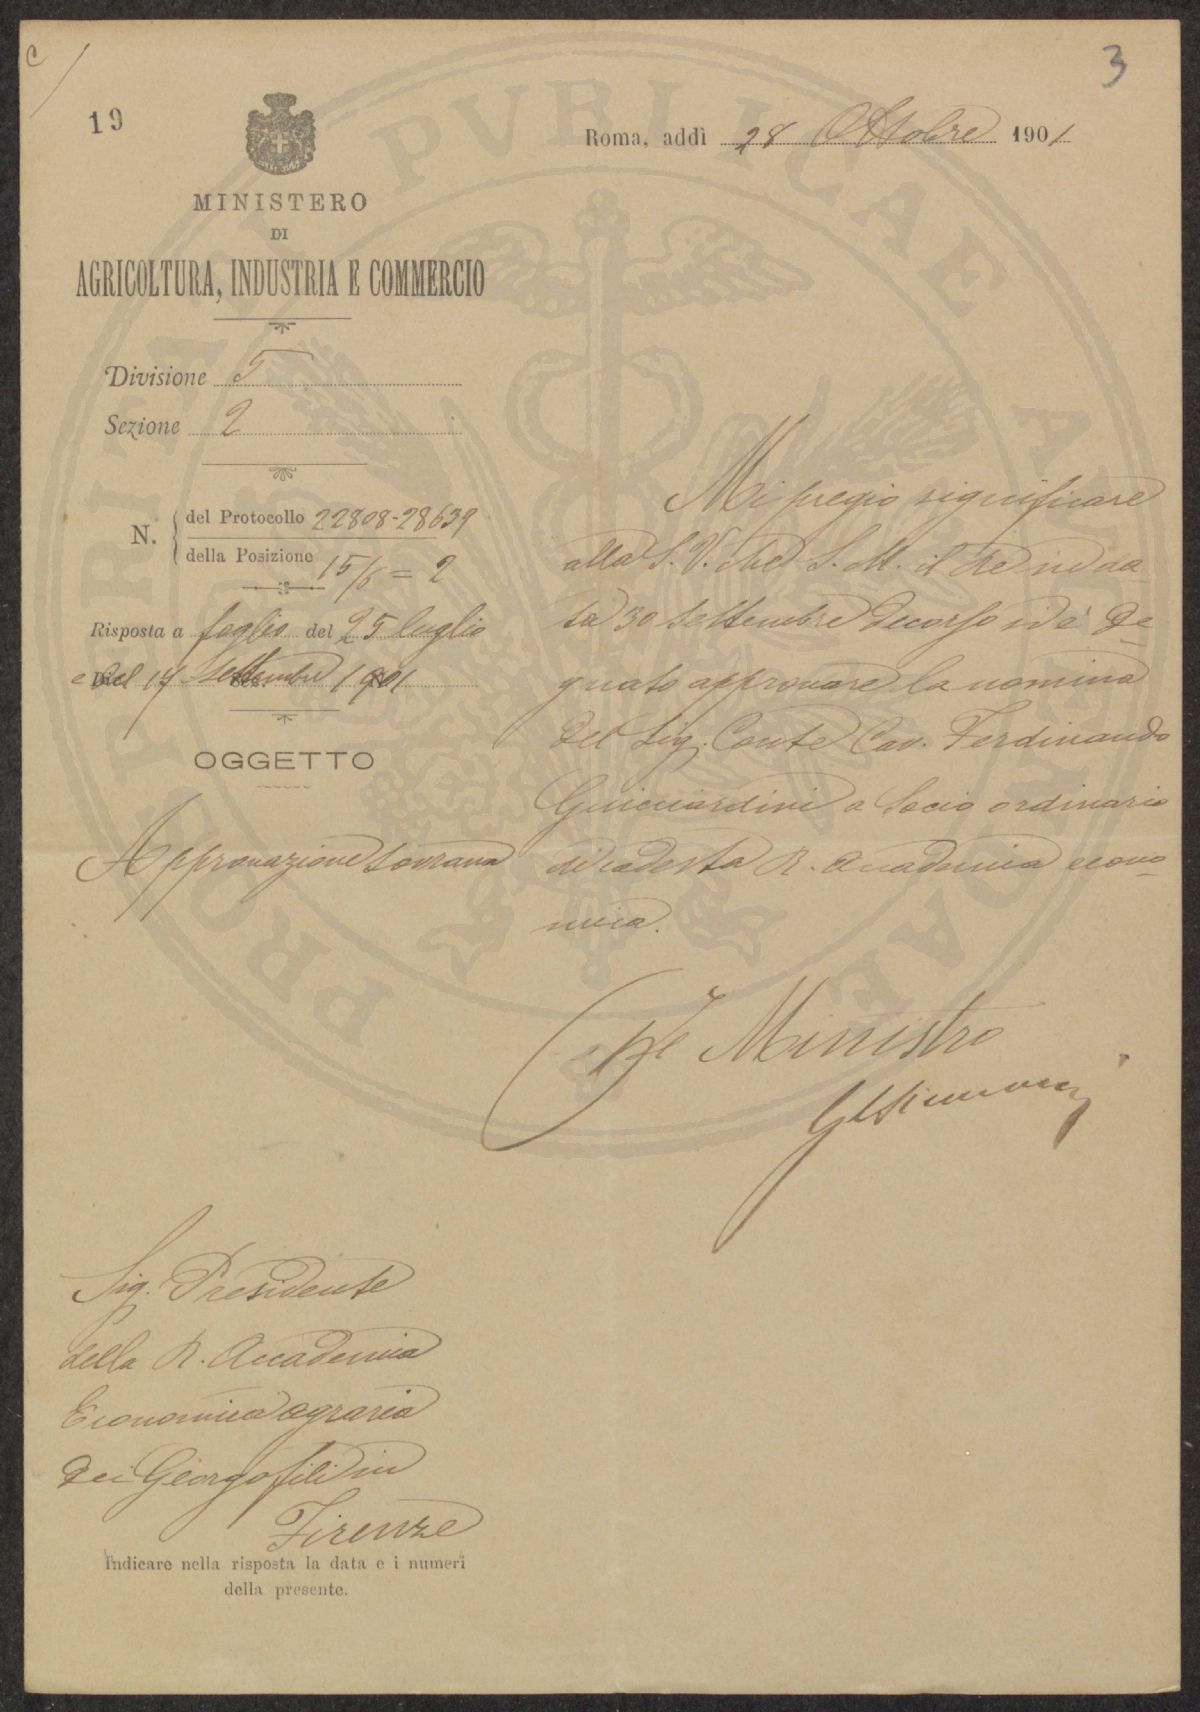 3
19
Roma, addì 28 Ottobre 1901
MINISTERO
DI
AGRICOLTURA, INDUSTRIA E COMMERCIO
Divisione 5
Sezione 2
N. del Protocollo 22808-28639
della Posizione 15/6 = 2
Risposta a foglio del 25 luglio
e del 14 Settembre 1901
OGGETTO
Approvazione sovrana
Mi pregio significare
alla S. V. che S. M. il Re in da-
ta 30 settembre decorso si è de-
gnato approvare la nomina
del Sig. Conte Cav. Ferdinando
Guicciardini a Socio ordinario
di codesta R. Accademia econo-
mica.
Pel Ministro
Sig. Presidente
della R. Accademia
Economico agraria
dei Georgofili in
Firenze
Indicare nella risposta la data e i numeri
della presente.
PROSPERITATI PVBLICAE AVGENDAE